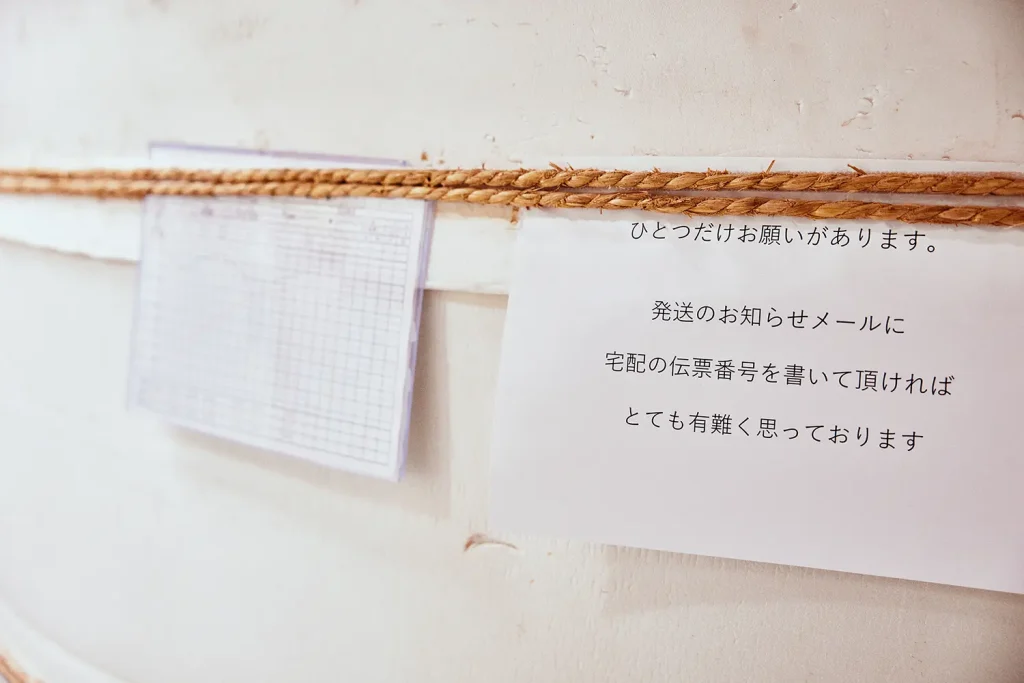 ひとつだけお願いがあります。
発送のお知らせメールに
宅配の伝票番号を書いて頂ければ
とても有難く思っております